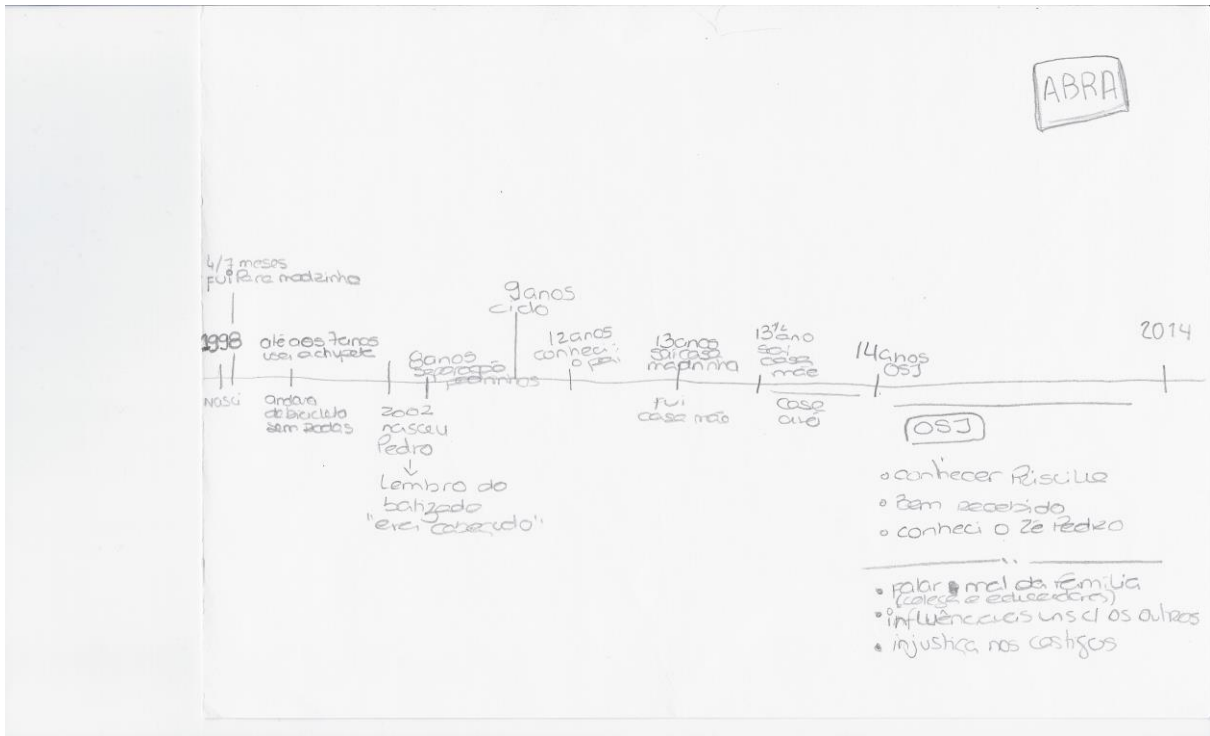 ABRA
4/7 meses
Fui Para madrinha
1998
Nasci
até aos 7 anos
usei a chupete
andava
de bicicleta
sem rodas
2002
nasceu
Pedro
↓
Lembro do
batizado
"era cabeçudo"
8 anos
separação
padrinhos
9 anos
ciclo
12 anos
conheci
o pai
13 anos
sai casa
madrinha
Fui
casa mãe
13 anos
sai
casa
mãe
casa
avó
14 anos
OSJ
2014
OSJ
conhecer Priscila
• Bem recebido
• conheci o Zé Pedro
• falar mal da família
(colegas e educadores)
• influências uns c/ os outros
• injustiça nos castigos